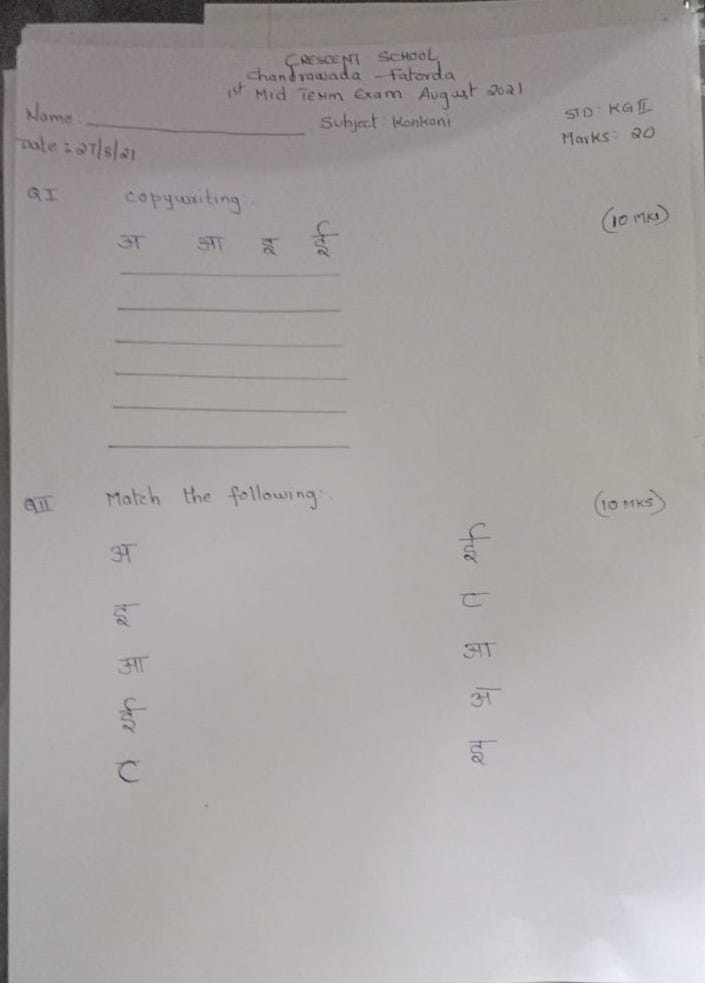 CRESCENT SCHOOL
Chandrawada - Fatorda
1st Mid Term Exam August 2021
Name
Subject: Konkani
STD: KG II
Date: 27/8/21
Marks: 20
Q I copywriting: (10 Mks)
अ आ इ ई
Q II Match the following: (10 MKS)
अ ई
इ ट
आ आ
ई अ
ट इ